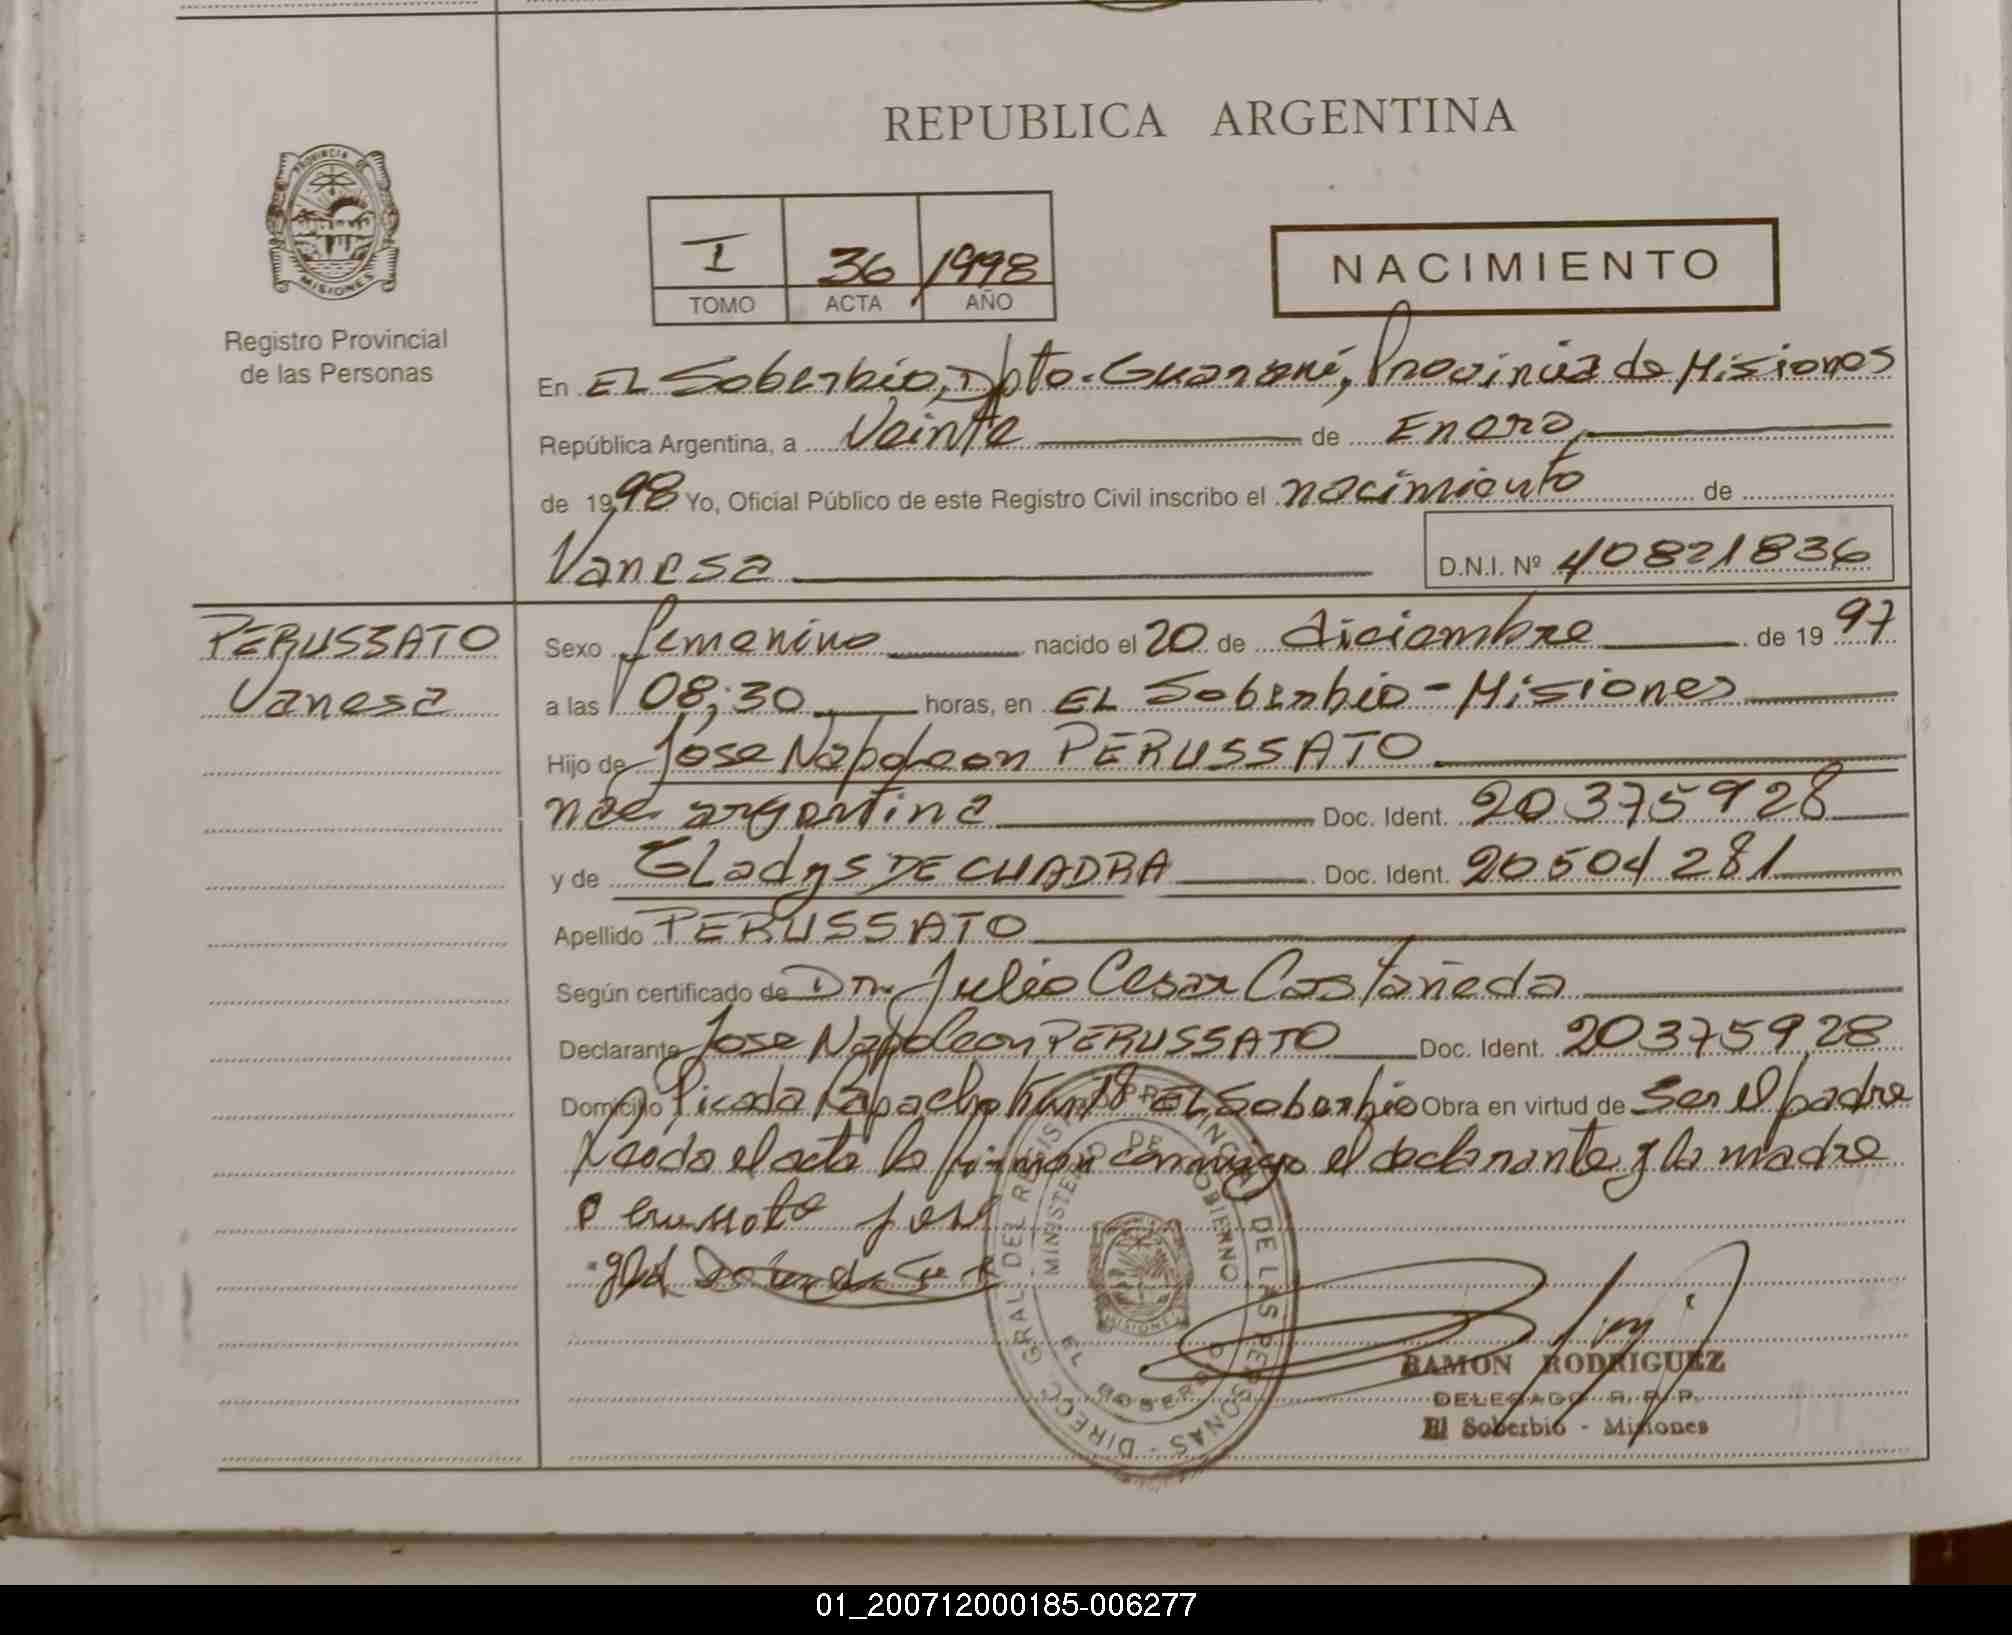 REPUBLICA ARGENTINA
PROVINCIA DE
MISIONES
Registro Provincial
de las Personas
I 36 1998
TOMO ACTA AÑO
NACIMIENTO
En EL Soberbio, Dpto. Guarani, Provincia de Misiones
República Argentina, a Veinte de Enero,
de 1998 Yo, Oficial Público de este Registro Civil inscribo el nacimiento de
Vanesa D.N.I. Nº 40821836
PERUSSATO
Vanesa
Sexo femenino nacido el 20 de diciembre de 19 97
a las 08;30 horas, en EL Soberbio - Misiones
Hijo de Jose Napoleon PERUSSATO
nac. argentina Doc. Ident. 20375928
y de GLadys DE CUADRA Doc. Ident. 20504281
Apellido PERUSSATO
Según certificado de Dr. Julio Cesar Castañeda
Declarante Jose Napoleon PERUSSATO Doc. Ident. 20375928
Domicilio Picada Km 18 EL Soberbio Obra en virtud de Ser el padre
Leida el acta la firman conmigo el declarante y la madre
Perussato Jose
DIRECC. GRAL. DEL REGISTRO PROVINCIAL DE LAS PERSONAS
MINISTERIO DE GOBIERNO
MISIONES
EL SOBERBIO
RAMON RODRIGUEZ
DELEGADO R. P. P.
El Soberbio - Misiones
01_200712000185-006277